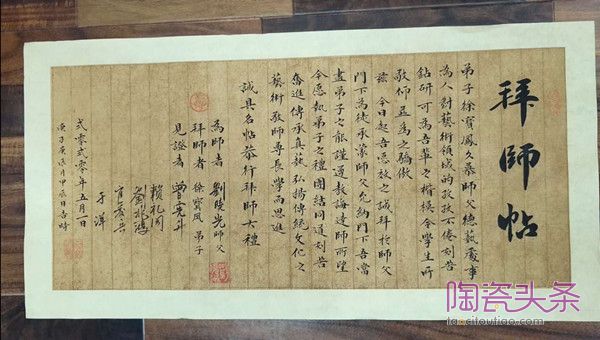 拜師帖
弟子徐寶鳳久慕師父總藝處事
為人對藝術領域的孜孜不倦刻苦
鈷研可為吾輩之楷模令學生所
敬仰並為之驕傲
茲 今日起吾懇放之誠拜於師父
門下為徒承蒙師父允納門下吾當
盡弟子之能謹遵教誨達師所望
今愿執弟子之禮團結同道刻苦
奮進傳承真藝弘揚傳統文化之
藝術敬師尊長學而思進
誠具名帖恭行拜師大禮
為師者 劉 光師父
拜師者 徐寶鳳弟子
見證者 曾憲升
賴禮同
劉
于洋
弍零弍零年五月一日
庚子庚辰月甲辰日吉時
陶瓷头条
taocitoutiao.com